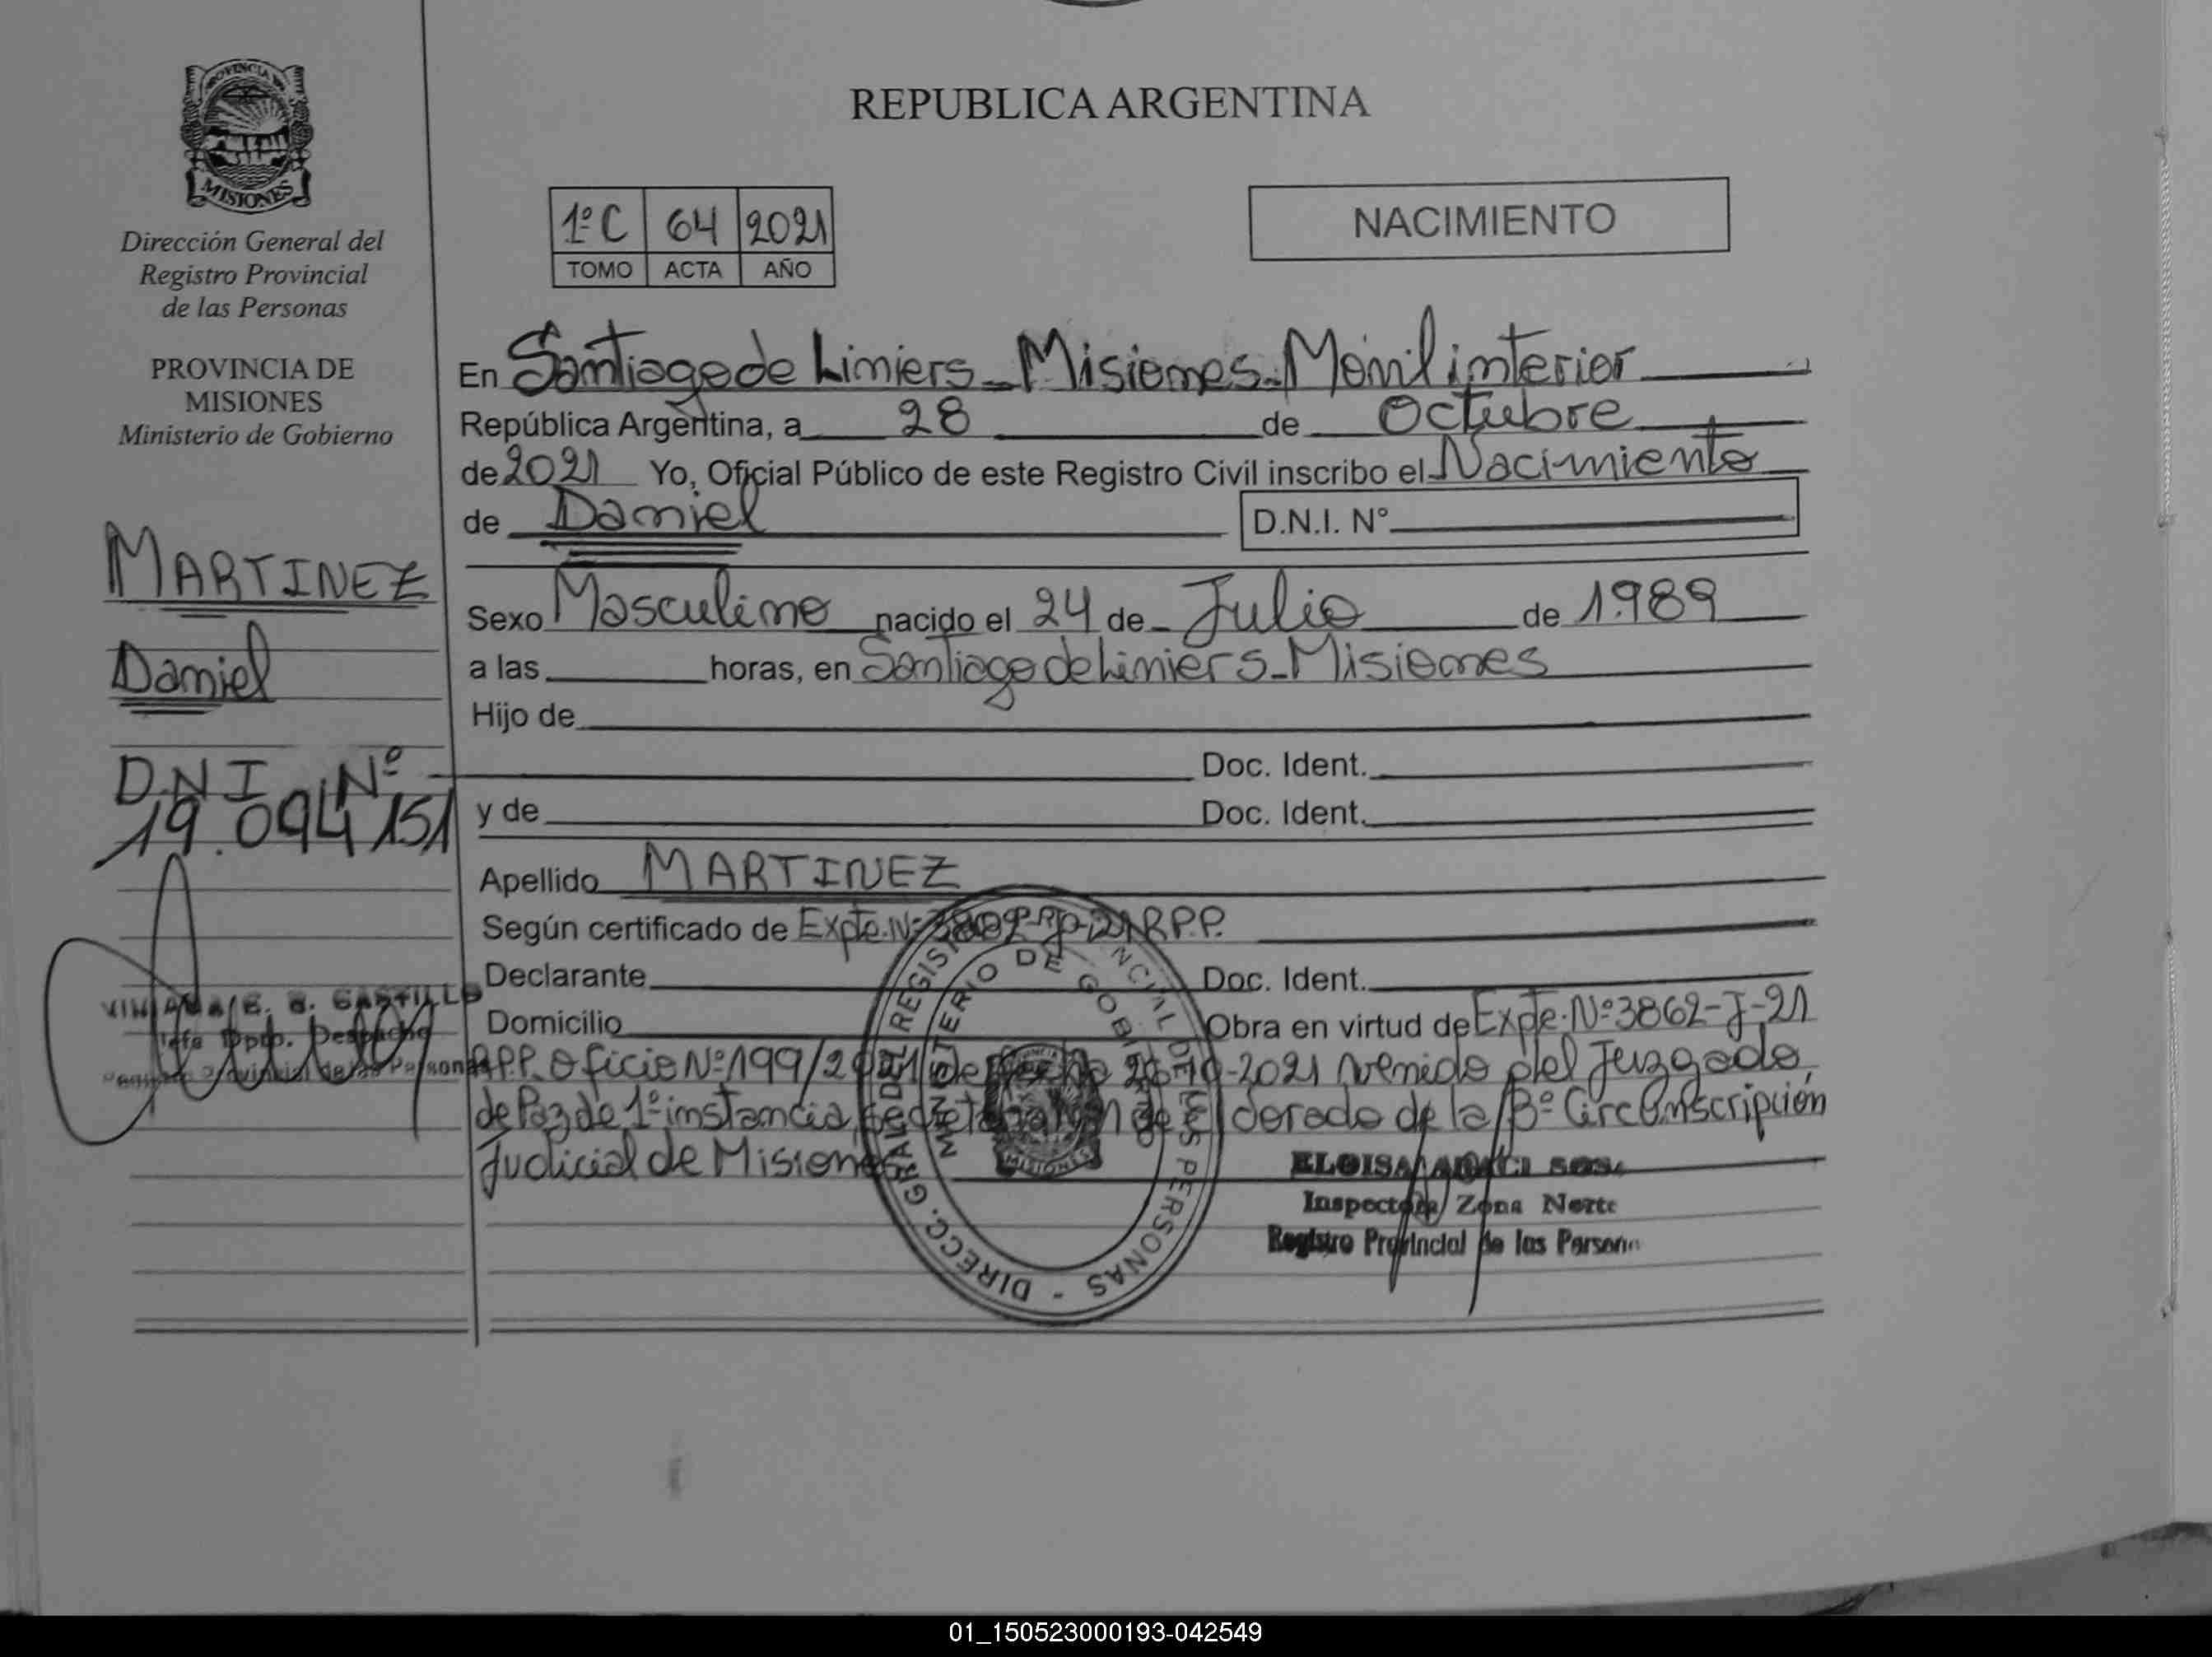 REPUBLICA ARGENTINA
PROVINCIA DE
MISIONES
Dirección General del
Registro Provincial
de las Personas
PROVINCIA DE
MISIONES
Ministerio de Gobierno
MARTINEZ
Daniel
D.N.I Nº
19.094151
VIVIANA E. B. CASTILLO
Jefe Dpto. Despacho
Registro Provincial de las Personas
1ºC 64 2021
TOMO ACTA AÑO
NACIMIENTO
En Santiago de Liniers - Misiones - Móvil interior
República Argentina, a 28 de Octubre
de 2021 Yo, Oficial Público de este Registro Civil inscribo el Nacimiento
de Daniel D.N.I. N°
Sexo Masculino nacido el 24 de Julio de 1.989
a las horas, en Santiago de Liniers - Misiones
Hijo de
Doc. Ident.
y de Doc. Ident.
Apellido MARTINEZ
Según certificado de Expte. Nº R.P.P.
Declarante Doc. Ident.
Domicilio Obra en virtud de Expte. Nº 3862-J-21
R.P.P. Oficio Nº 199/2021 de -2021 venido del Juzgado
de Paz de 1º instancia, de Eldorado de la 3º Circunscripción
Judicial de Misiones
DIRECC. GRAL. DEL REGISTRO PROVINCIAL DE LAS PERSONAS -
MINISTERIO DE GOBIERNO
MISIONES
ELOISA SOSA
Inspectora Zona Norte
Registro Provincial de las Persona
01_150523000193-042549